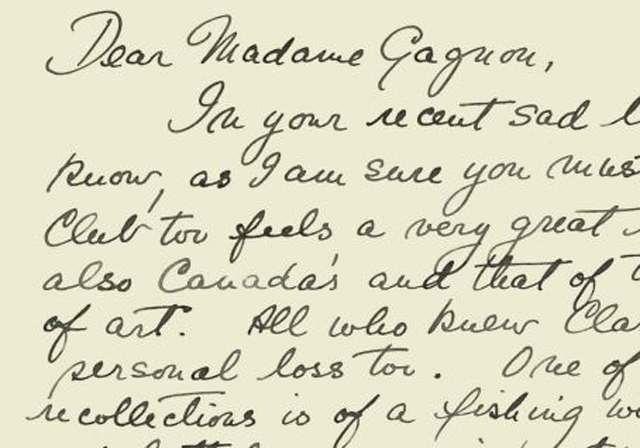 Dear Madame Gagnon,
In your recent sad
know, as I am sure you
Club too feels a very great
also Canada's and that of
of art. All who knew
personal loss too. One of
recollections is of a fishing